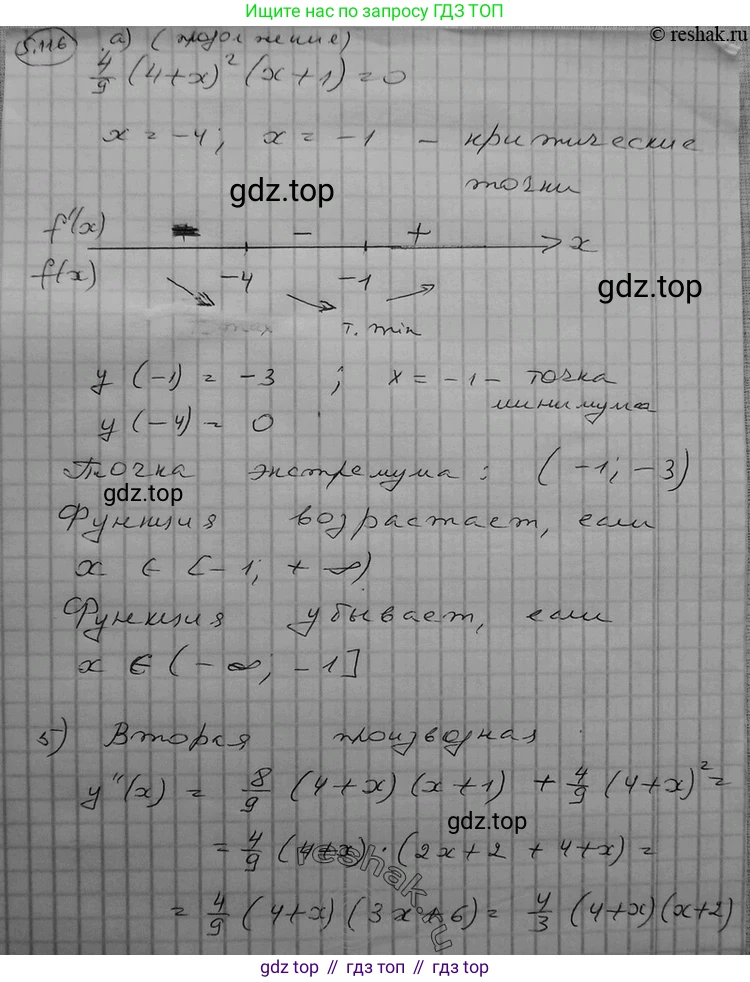 Ищите на запросу ГДЗ ТОП
© reshak.ru
5.116 а) (продолжение)
4/9 (4+x)² (x+1) = 0
x = -4; x = -1 - критические
точки
gdz.top
f'(x) - + x
f(x) -4 -1
gdz.top
т. max т. min
y (-1) = -3 ; x = -1 - точка
минимума
y (-4) = 0
Точка экстремума: (-1; -3)
gdz.top
Функция возрастает, если
x ∈ [-1; +∞)
Функция убывает, если
x ∈ (-∞; -1]
5) Вторая производная
y''(x) = 8/9 (4+x) (x+1) + 4/9 (4+x)² =
gdz.top
= 4/9 (4+x) · (2x+2 + 4+x) =
reshak.ru
= 4/9 (4+x) (3x+6) = 4/3 (4+x)(x+2)
gdz.top // гдз.топ // gdz.top // гдз.топ